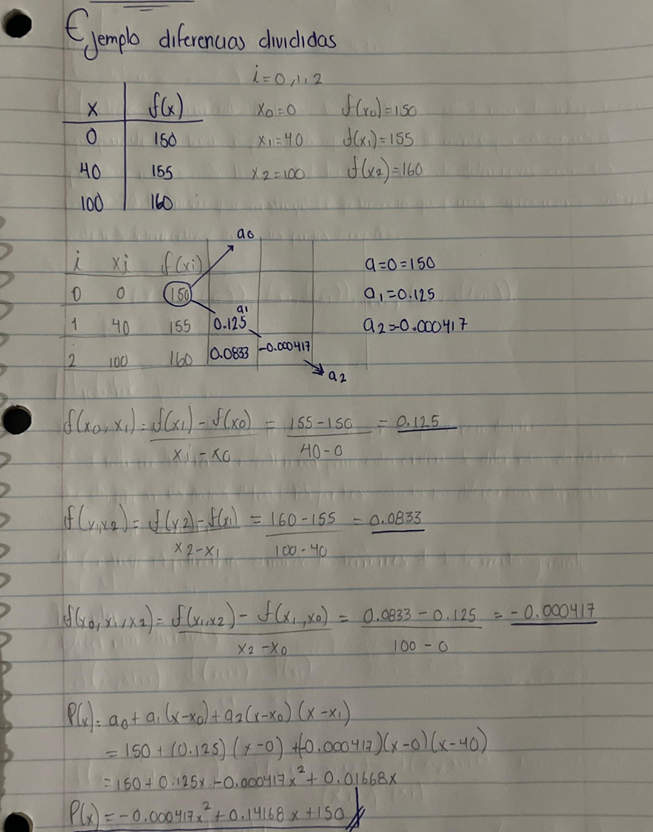 Ejemplo diferencias divididas
i=0,1,2
x f(x) x0=0 f(x0)=150
0 150 x1=40 f(x1)=155
40 155 x2=100 f(x2)=160
100 160
a0
i xi f(xi) a=0=150
0 0 150 a1 a1=0.125
1 40 155 0.125 a2=-0.000417
2 100 160 0.0833 -0.000417
a2
f(x0,x1)= f(x1)-f(x0) / x1-x0 = 155-150 / 40-0 = 0.125
f(x1,x2)= f(x2)-f(x1) / x2-x1 = 160-155 / 100-40 = 0.0833
f(x0,x1,x2)= f(x1,x2)- f(x1,x0) / x2-x0 = 0.0833-0.125 / 100-0 = -0.000417
P(x)= a0+a1(x-x0)+a2(x-x0)(x-x1)
=150+(0.125)(x-0)+(-0.000417)(x-0)(x-40)
=150+0.125x-0.000417x²+0.01668x
P(x)=-0.000417x²+0.14168x+150